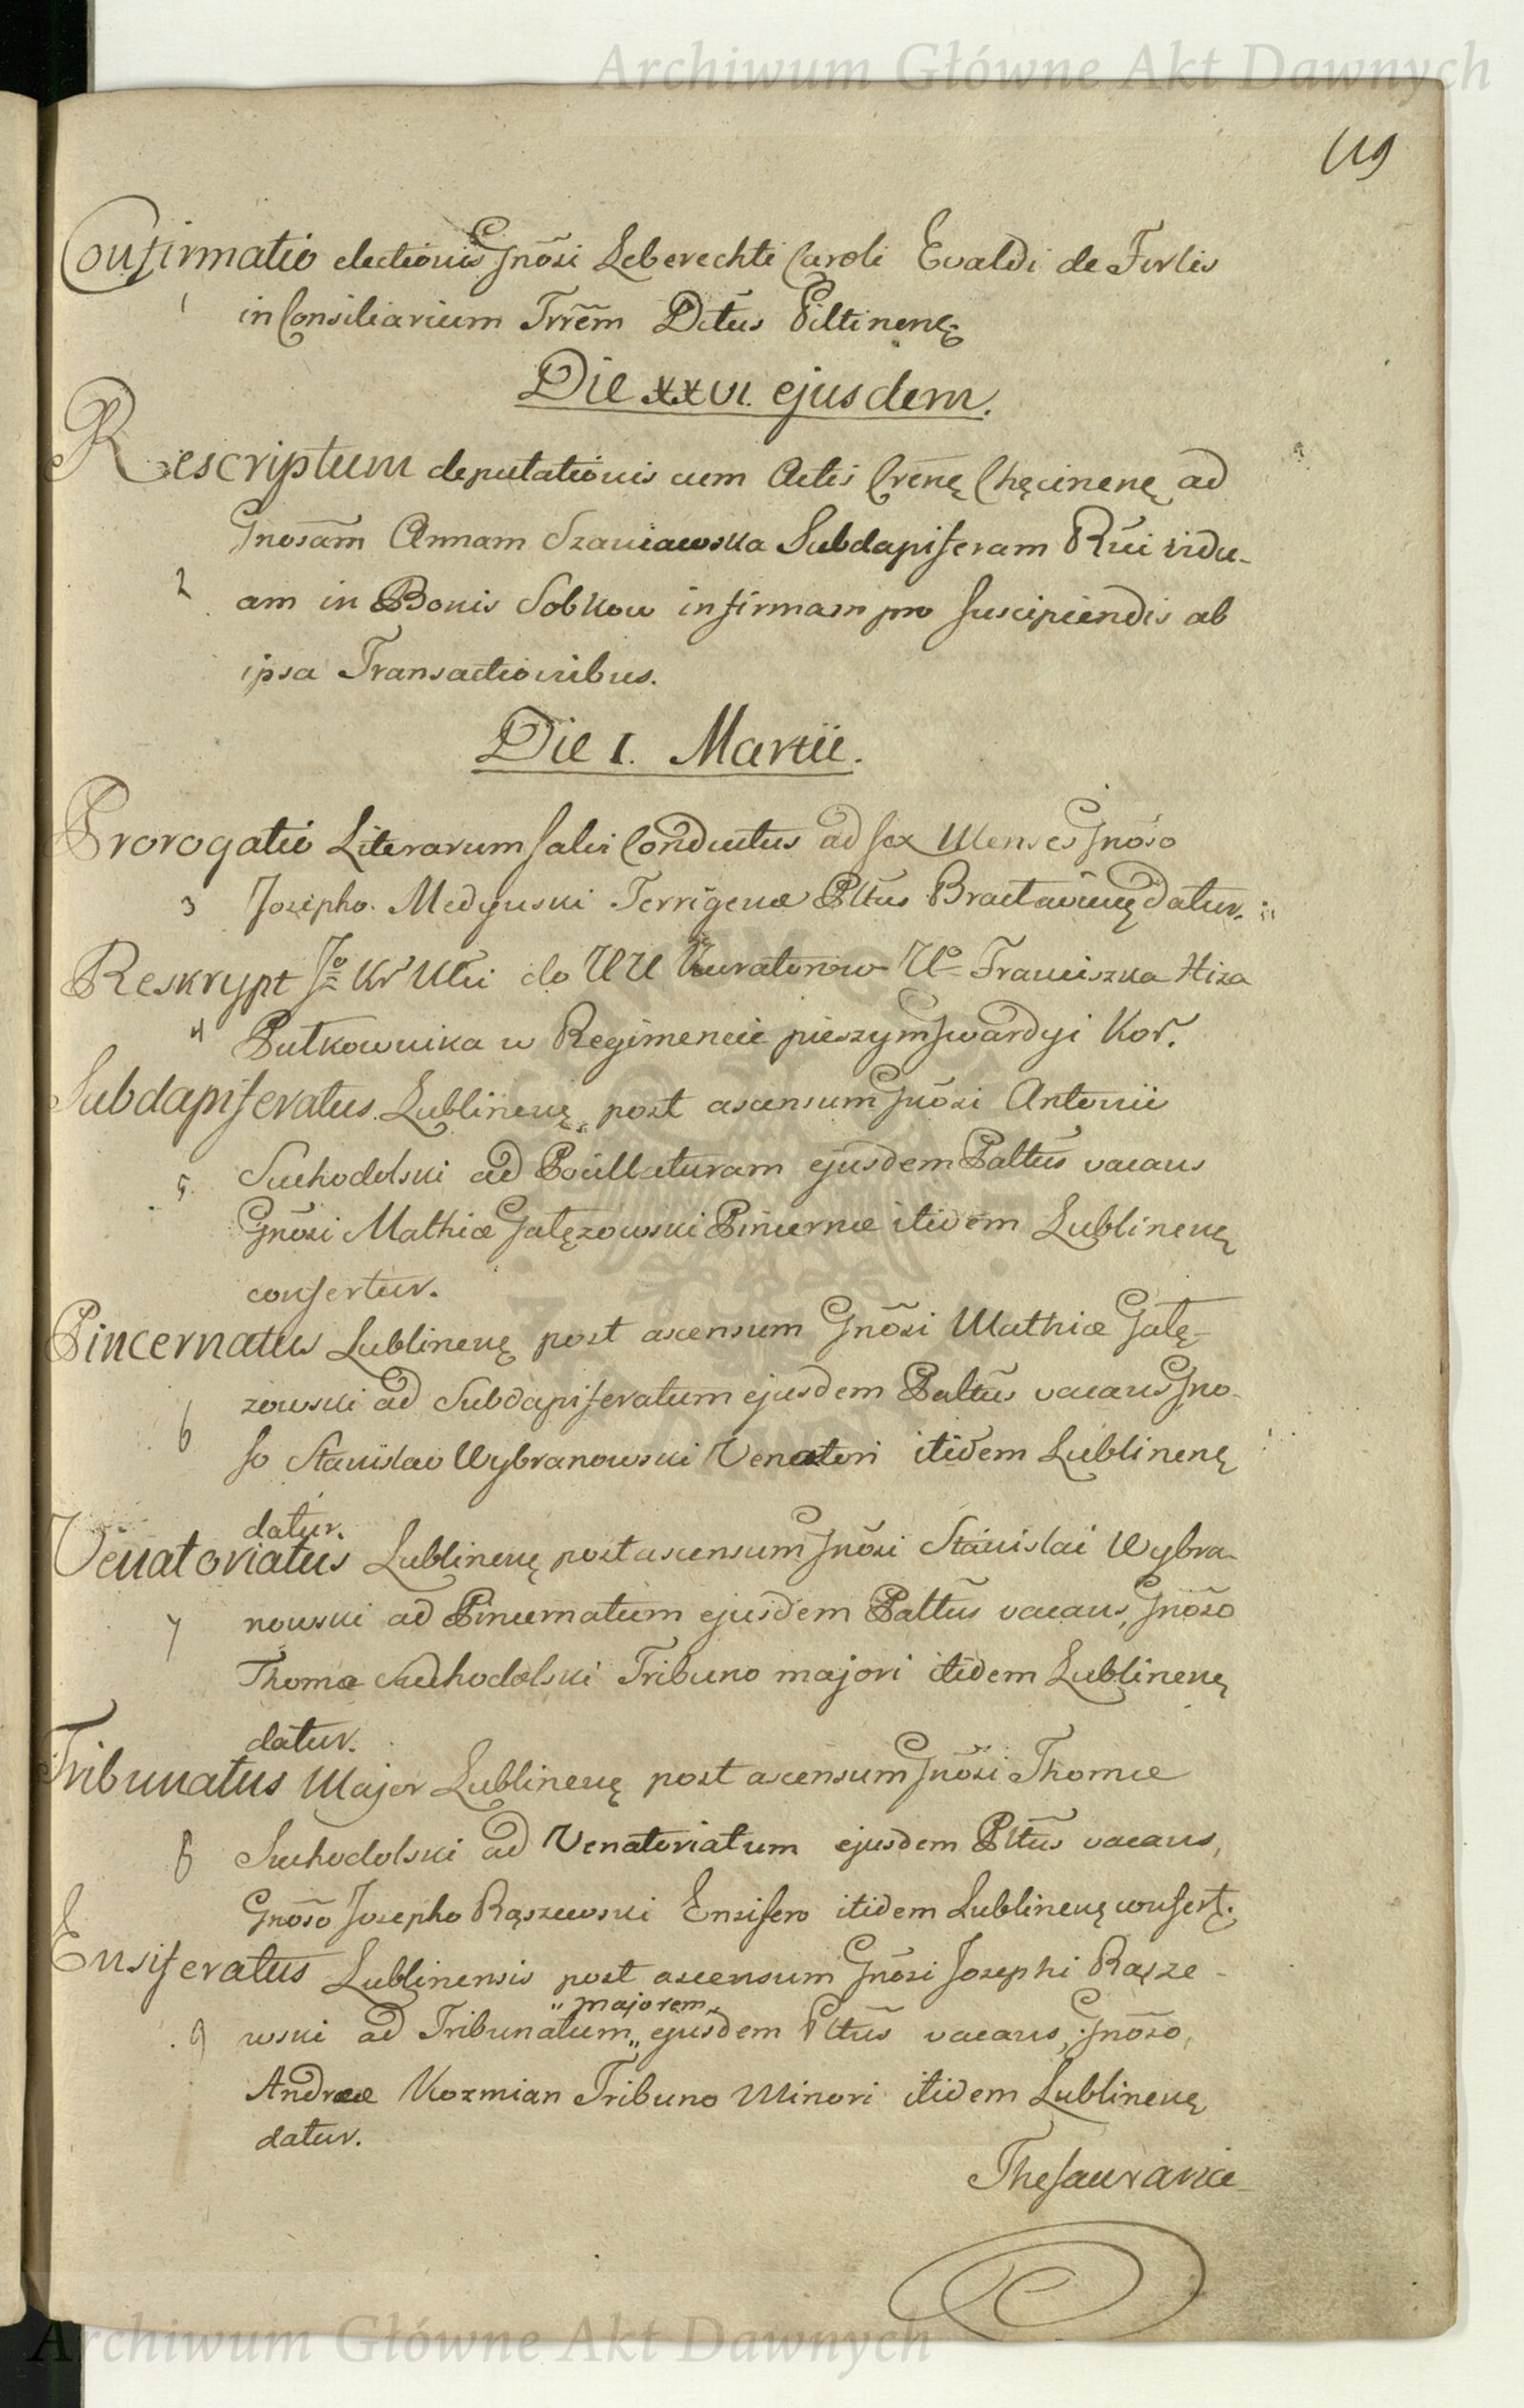 Archiwum Główne Akt Dawnych
119
Confirmatio electionis Gnõsi Leberechti Caroli Evaldi de Firlis
1 in Consiliarium Trrẽm Dctũs Piltinenę
Die XXVI. ejusdem.
Rescriptum deputationis cum Actis Crenę Chęcinenę ad
Gnosãm Annam Szaniawska Subdapiferam Rũi vidu-
2 am in Bonis Sobkow infirmam pro suscipiendis ab
ipsa Transactionibus.
Die I. Martii.
Prorogatio Literarum salvi Conductus ad sex Menses Gnõso
3 Josepho Medynski Terrigenæ Pltũs Braclavienę datur.
Reskrypt Jo Kr Mci do UU Kuratorow Uo Franciszka Hiża
4 Pułkownika w Regimencie pieszym Gwardyi Kor.
Subdapiferatus Lublinenę post ascensum Gnõsi Antonii
5. Suchodolski ad Pocillaturam ejusdem Paltũs vacans
Gnõsi Mathiæ Gałęzowski Pincernæ itidem Lublinenę
confertur.
Pincernatus Lublinenę post ascensum Gnõsi Mathiæ Gałę-
zowski ad Subdapiferatum ejusdem Paltũs vacans Gno-
6 so Stanislao Wybranowski Venatori itidem Lublinenę
datur.
Venatoriatus Lublinenę post ascensum Gnõsi Stanislai Wybra-
7 nowski ad Pincernatum ejusdem Paltũs vacans, Gnõso
Thomæ Suchodolski Tribuno majori itidem Lublinenę
datur.
Tribunatus Major Lublinenę post ascensum Gnõsi Thomæ
8 Suchodolski ad Venatoriatum ejusdem Pltũs vacans,
Gnõso Josepho Rąszewski Ensifero itidem Lublinenę confert.
Ensiferatus Lublinensis post ascensum Gnõsi Josephi Rąsze-
„majorem„
9 wski ad Tribunatum„ ejusdem Pltũs vacans, Gnõso,
Andreæ Kozmian Tribuno Minori itidem Lublinenę
datur.
Thesauraria
Archiwum Główne Akt Dawnych